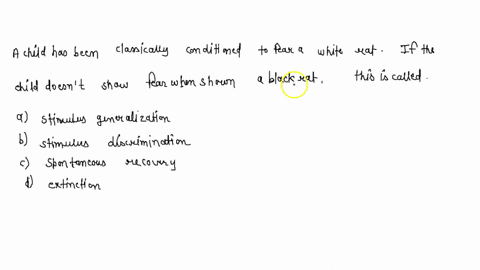 A child has been classically conditioned to fear a white rat. If the
child doesn't show fear when shown a black rat, this is called.
a) stimulus generalization
b) stimulus discrimination
c) spontaneous recovery
d) extinction